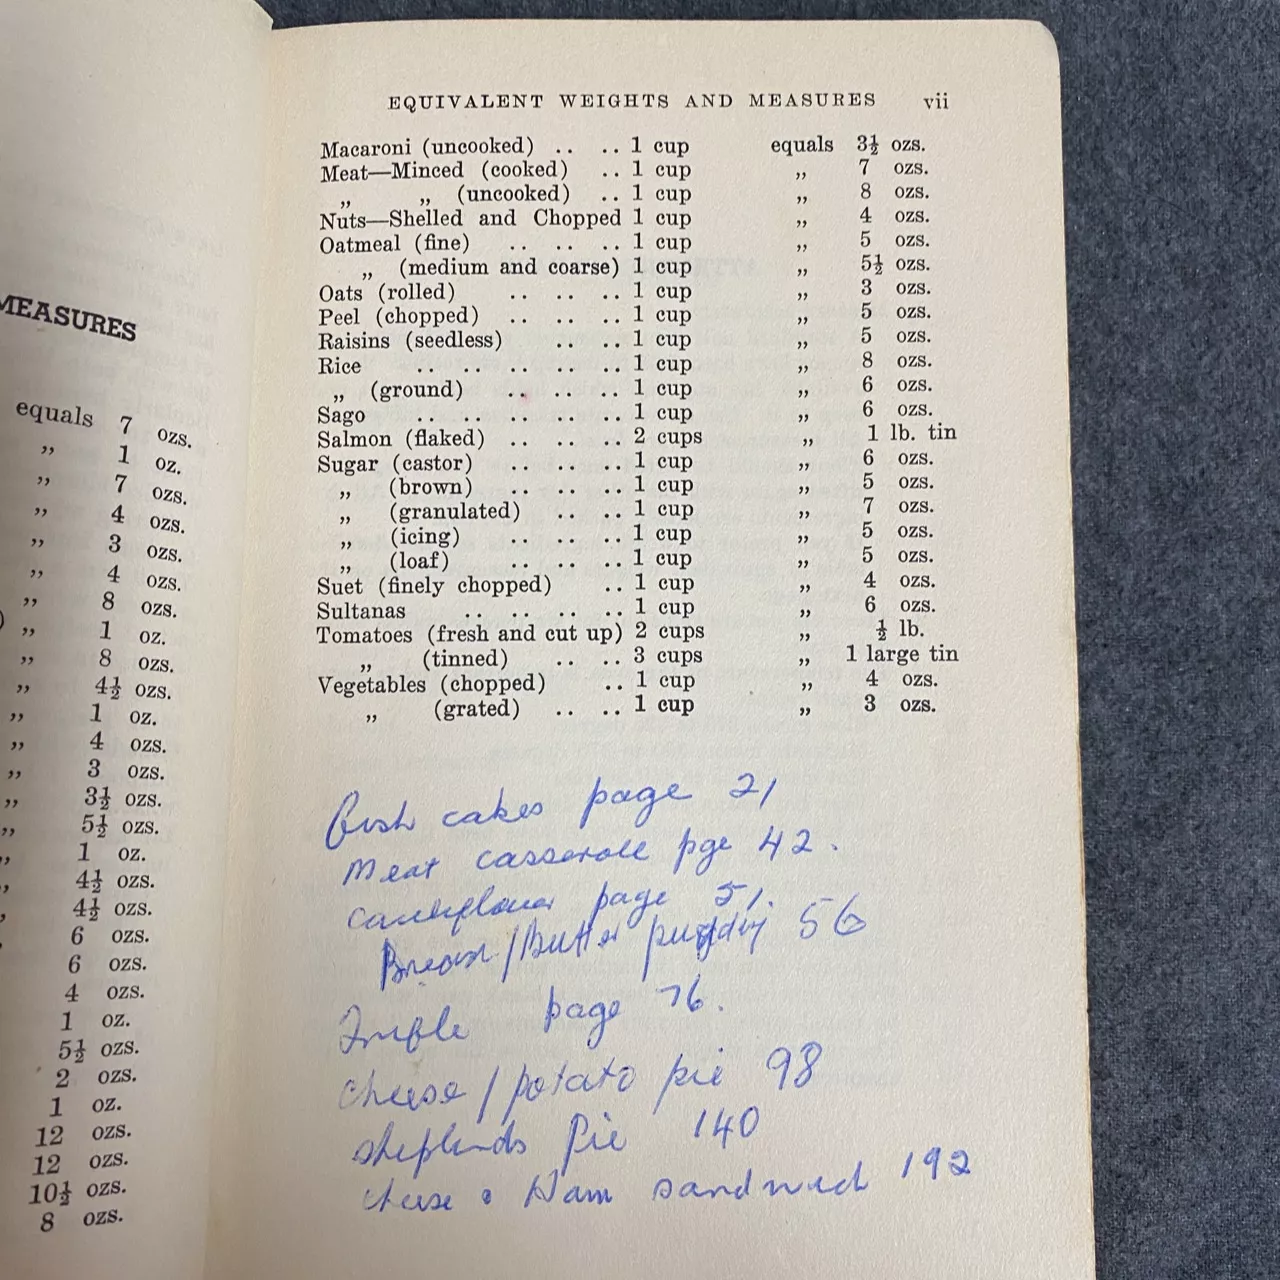 MEASURES
equals 7 ozs.
„ 1 oz.
„ 7 ozs.
„ 4 ozs.
„ 3 ozs.
„ 4 ozs.
„ 8 ozs.
) „ 1 oz.
„ 8 ozs.
„ 4½ ozs.
„ 1 oz.
„ 4 ozs.
„ 3 ozs.
„ 3½ ozs.
„ 5½ ozs.
„ 1 oz.
„ 4½ ozs.
„ 4½ ozs.
6 ozs.
6 ozs.
4 ozs.
1 oz.
5½ ozs.
2 ozs.
1 oz.
12 ozs.
12 ozs.
10½ ozs.
8 ozs.
EQUIVALENT WEIGHTS AND MEASURES vii
Macaroni (uncooked) .. .. 1 cup equals 3½ ozs.
Meat—Minced (cooked) .. 1 cup „ 7 ozs.
„ „ (uncooked) .. 1 cup „ 8 ozs.
Nuts—Shelled and Chopped 1 cup „ 4 ozs.
Oatmeal (fine) .. .. .. 1 cup „ 5 ozs.
„ (medium and coarse) 1 cup „ 5½ ozs.
Oats (rolled) .. .. .. 1 cup „ 3 ozs.
Peel (chopped) .. .. .. 1 cup „ 5 ozs.
Raisins (seedless) .. .. 1 cup „ 5 ozs.
Rice .. .. .. .. .. 1 cup „ 8 ozs.
„ (ground) .. .. .. 1 cup „ 6 ozs.
Sago .. .. .. .. .. 1 cup „ 6 ozs.
Salmon (flaked) .. .. .. 2 cups „ 1 lb. tin
Sugar (castor) .. .. .. 1 cup „ 6 ozs.
„ (brown) .. .. .. 1 cup „ 5 ozs.
„ (granulated) .. .. 1 cup „ 7 ozs.
„ (icing) .. .. .. 1 cup „ 5 ozs.
„ (loaf) .. .. .. 1 cup „ 5 ozs.
Suet (finely chopped) .. 1 cup „ 4 ozs.
Sultanas .. .. .. .. 1 cup „ 6 ozs.
Tomatoes (fresh and cut up) 2 cups „ ½ lb.
„ (tinned) .. .. 3 cups „ 1 large tin
Vegetables (chopped) .. 1 cup „ 4 ozs.
„ (grated) .. .. 1 cup „ 3 ozs.
Fish cakes page 21
Meat casserole pge 42.
cauliflower page 51.
Bread/Butter pudding 56
Trifle page 76.
cheese / potato pie 98
shepherds Pie 140
cheese & Ham sandwich 192